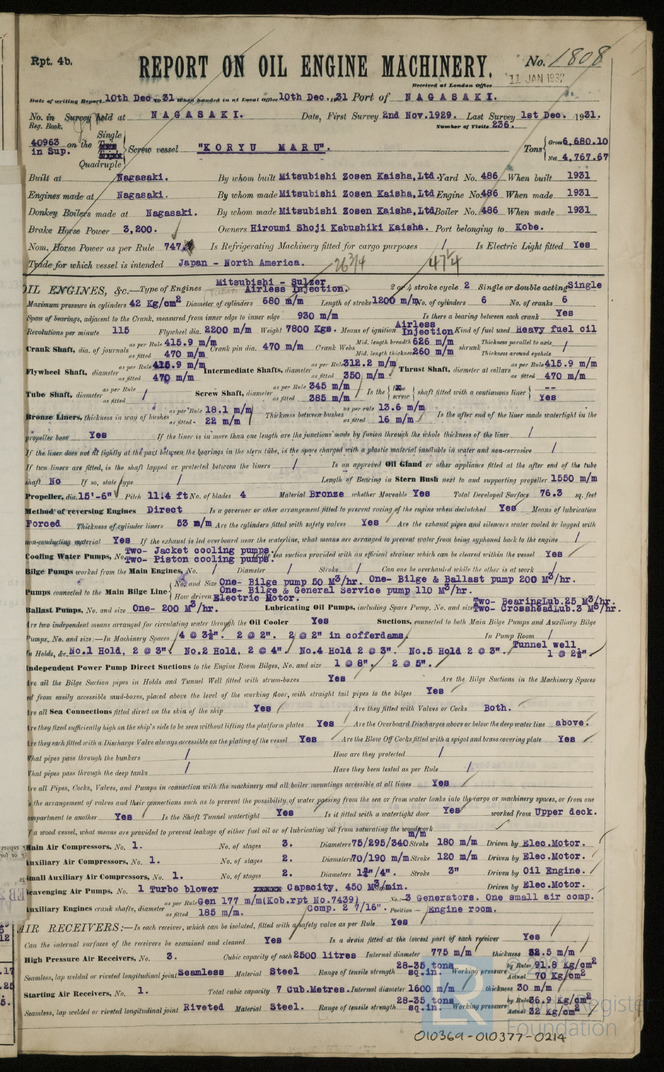 Rpt. 4b.
REPORT ON OIL ENGINE MACHINERY.
No. 1808
11 JAN 1932
Received at London Office
Date of writing Report 10th Dec. 31 When handed in at Local Office 10th Dec. 31 Port of NAGASAKI.
No. in Survey held at NAGASAKI. Date, First Survey 2nd Nov. 1929. Last Survey 1st Dec. 1931.
Reg. Book. Number of Visits 236.
40963 in Sup. on the Single Quadruple Screw vessel "KORYU MARU". Tons Gross 6,680.10 Net 4,767.67
Built at Nagasaki. By whom built Mitsubishi Zosen Kaisha, Ltd. Yard No. 486 When built 1931
Engines made at Nagasaki. By whom made Mitsubishi Zosen Kaisha, Ltd. Engine No. 486 When made 1931
Donkey Boilers made at Nagasaki. By whom made Mitsubishi Zosen Kaisha, Ltd. Boiler No. 486 When made 1931
Brake Horse Power 3,200. Owners Hiroumi Shoji Kabushiki Kaisha. Port belonging to Kobe.
Nom. Horse Power as per Rule 747 Is Refrigerating Machinery fitted for cargo purposes / Is Electric Light fitted Yes
Trade for which vessel is intended Japan - North America. 26 3/4 47 1/4
OIL ENGINES, &c.—Type of Engines Mitsubishi - Sulzer Airless Injection. 2 or 4 stroke cycle 2 Single or double acting Single
Maximum pressure in cylinders 42 Kg/cm² Diameter of cylinders 680 m/m Length of stroke 1200 m/m No. of cylinders 6 No. of cranks 6
Span of bearings, adjacent to the Crank, measured from inner edge to inner edge 930 m/m Is there a bearing between each crank Yes
Revolutions per minute 115 Flywheel dia. 2200 m/m Weight 7800 Kgs. Means of ignition Airless Injection Kind of fuel used Heavy fuel oil
Crank Shaft, dia. of journals as per Rule 415.9 m/m as fitted 470 m/m Crank pin dia. 470 m/m Crank Webs Mid. length breadth 626 m/m Mid. length thickness 260 m/m shrunk Thickness parallel to axis / Thickness around eyehole /
Flywheel Shaft, diameter as per Rule 415.9 m/m as fitted 470 m/m Intermediate Shafts, diameter as per Rule 312.2 m/m as fitted 350 m/m Thrust Shaft, diameter at collars as per Rule 415.9 m/m as fitted 470 m/m
Tube Shaft, diameter as per Rule / as fitted / Screw Shaft, diameter as per Rule 345 m/m as fitted 385 m/m Is the screw shaft fitted with a continuous liner Yes
Bronze Liners, thickness in way of bushes as per Rule 18.1 m/m as fitted 22 m/m Thickness between bushes as per rule 13.6 m/m as fitted 16 m/m Is the after end of the liner made watertight in the
propeller boss Yes If the liner is in more than one length are the junctions made by fusion through the whole thickness of the liner /
If the liner does not fit tightly at the part between the bearings in the stern tube, is the space charged with a plastic material insoluble in water and non-corrosive /
If two liners are fitted, is the shaft lapped or protected between the liners / Is an approved Oil Gland or other appliance fitted at the after end of the tube
shaft No If so, state type / Length of Bearing in Stern Bush next to and supporting propeller 1550 m/m
Propeller, dia. 15'-6" Pitch 11.4 ft No. of blades 4 Material Bronze whether Moveable Yes Total Developed Surface 76.3 sq. feet
Method of reversing Engines Direct Is a governor or other arrangement fitted to prevent racing of the engine when declutched Yes Means of lubrication
Forced Thickness of cylinder liners 53 m/m Are the cylinders fitted with safety valves Yes Are the exhaust pipes and silencers water cooled or lagged with
non-conducting material Yes If the exhaust is led overboard near the waterline, what means are arranged to prevent water from being syphoned back to the engine /
Cooling Water Pumps, No. Two- Jacket cooling pumps. Two- Piston cooling pumps. the sea suction provided with an efficient strainer which can be cleared within the vessel Yes
Bilge Pumps worked from the Main Engines, No. / Diameter / Stroke / Can one be overhauled while the other is at work /
Pumps connected to the Main Bilge Line No. and Size One- Bilge pump 50 M³/hr. One- Bilge & Ballast pump 200 M³/hr. One- Bilge & General Service pump 110 M³/hr.
How driven Electric Motor.
Ballast Pumps, No. and size One- 200 M³/hr. Lubricating Oil Pumps, including Spare Pump, No. and size Two- Bearing Lub. 25 M³/hr. Two- Crosshead Lub. 3 M³/hr.
Are two independent means arranged for circulating water through the Oil Cooler Yes Suctions, connected to both Main Bilge Pumps and Auxiliary Bilge
Pumps, No. and size:—In Machinery Spaces 4 @ 3½". 2 @ 2". 2 @ 2" in cofferdams. In Pump Room /
In Holds, &c. No.1 Hold, 2 @ 3". No.2 Hold, 2 @ 4". No.4 Hold 2 @ 3". No.5 Hold 2 @ 3". Tunnel well 1 @ 2½"
Independent Power Pump Direct Suctions to the Engine Room Bilges, No. and size 1 @ 8". 2 @ 5".
Are all the Bilge Suction pipes in Holds and Tunnel Well fitted with strum-boxes Yes Are the Bilge Suctions in the Machinery Spaces
led from easily accessible mud-boxes, placed above the level of the working floor, with straight tail pipes to the bilges Yes
Are all Sea Connections fitted direct on the skin of the ship Yes Are they fitted with Valves or Cocks Both.
Are they fixed sufficiently high on the ship's side to be seen without lifting the platform plates Yes Are the Overboard Discharges above or below the deep water line above.
Are they each fitted with a Discharge Valve always accessible on the plating of the vessel Yes Are the Blow Off Cocks fitted with a spigot and brass covering plate Yes
What pipes pass through the bunkers / How are they protected /
What pipes pass through the deep tanks / Have they been tested as per Rule /
Are all Pipes, Cocks, Valves, and Pumps in connection with the machinery and all boiler mountings accessible at all times Yes
Is the arrangement of valves and their connections such as to prevent the possibility of water passing from the sea or from water tanks into the cargo or machinery spaces, or from one
compartment to another Yes Is the Shaft Tunnel watertight Yes Is it fitted with a watertight door Yes worked from Upper deck.
If a wood vessel, what means are provided to prevent leakage of either fuel oil or of lubricating oil from saturating the woodwork
m/m
Main Air Compressors, No. 1. No. of stages 3. Diameters 75/295/340 Stroke 180 m/m Driven by Elec.Motor.
Auxiliary Air Compressors, No. 1. No. of stages 2. Diameters 70/190 m/m Stroke 120 m/m Driven by Elec.Motor.
Small Auxiliary Air Compressors, No. 1. No. of stages 2. Diameters Stroke 3" Driven by Oil Engine.
Scavenging Air Pumps, No. 1 Turbo blower Capacity. 450 M³/min. Driven by Elec.Motor.
Auxiliary Engines crank shafts, diameter as per Rule Gen 177 m/m (Kob.rpt No.7439) as fitted 185 m/m. Comp. 2 7/16". No. 3 Generators. One small air comp. Position Engine room.
AIR RECEIVERS:—Is each receiver, which can be isolated, fitted with a safety valve as per Rule Yes
Can the internal surfaces of the receivers be examined and cleaned Yes Is a drain fitted at the lowest part of each receiver Yes
High Pressure Air Receivers, No. 3. Cubic capacity of each 2500 litres Internal diameter 775 m/m thickness 32.5 m/m
Seamless, lap welded or riveted longitudinal joint Seamless Material Steel Range of tensile strength 28-35 tons sq.in. Working pressure by Rules 91.8 Kg/cm² Actual 70 Kg/cm²
Starting Air Receivers, No. 1. Total cubic capacity 7 Cub.Metres. Internal diameter 1600 m/m thickness 30 m/m
Seamless, lap welded or riveted longitudinal joint Riveted Material Steel. Range of tensile strength 28-35 tons sq.in. Working pressure by Rules 36.9 Kg/cm² Actual 32 Kg/cm²
Register
Foundation
010369-010377-0214